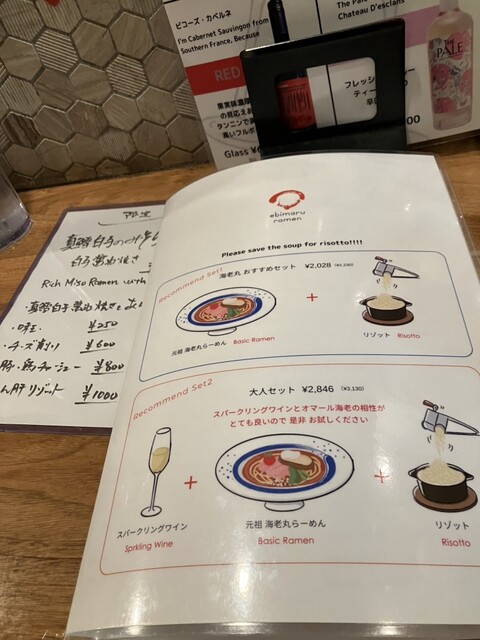 ピコーズ・カベルネ
I'm Cabernet Sauvingon from
Southern France, Because
Chateau D'esclans
THE
PALE
RED
果実味濃厚
の質応え
タンニンで
高いフルボ
Glass
フレッシ
ティー
辛口
ebimaru
ramen
Please save the soup for risotto!!!!
Recommend Set1
海老丸 おすすめセット ¥2,028
+
元祖 海老丸らーめん Basic Ramen
リゾット Risotto
Recommend Set2
大人セット ¥2,846 (¥3,130)
スパークリングワインとオマール海老の相性が
とても良いので 是非 お試しください
+
+
スパークリングワイン
Sprkling Wine
元祖 海老丸らーめん
Basic Ramen
リゾット
Risotto
限定
Rich Miso Ramen with
・味玉 ¥250
・チーズ削り ¥600
豚・鶏チャーシュー ¥800
ん肝リゾット ¥1000